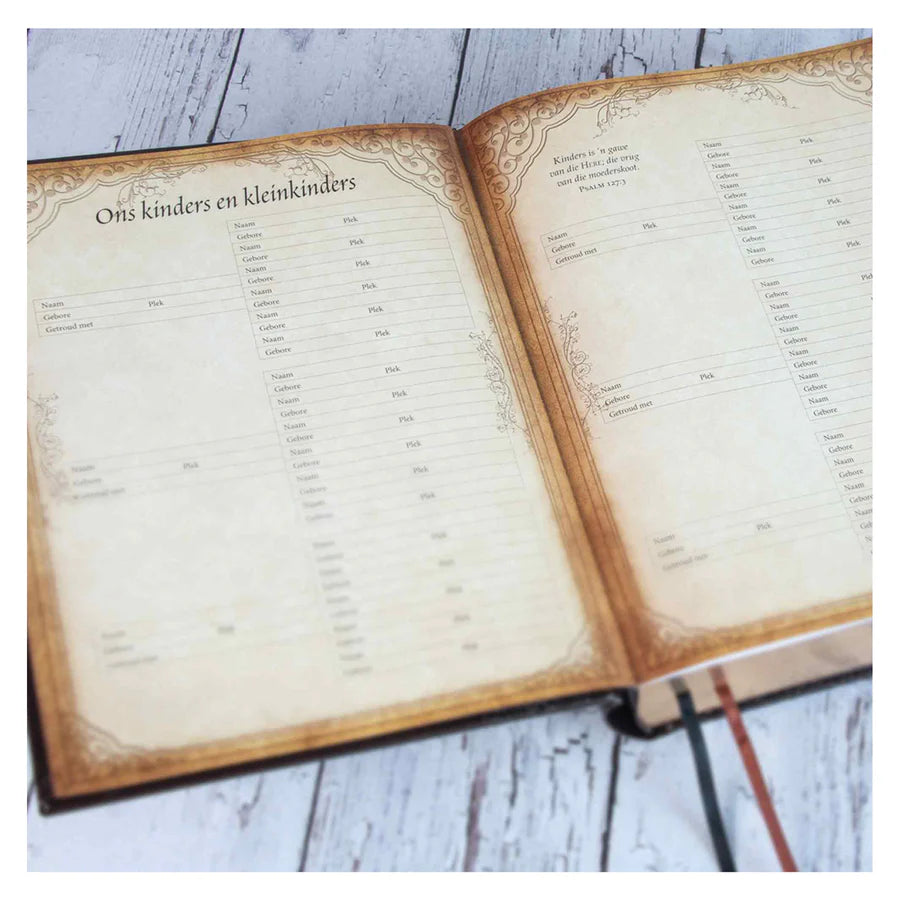 Ons kinders en kleinkinders
Naam Plek
Gebore
Getroud met
Naam Plek
Gebore
Getroud met
Naam Plek
Gebore
Naam Plek
Gebore
Naam Plek
Gebore
Naam Plek
Gebore
Naam Plek
Gebore
Naam Plek
Gebore
Naam Plek
Gebore
Naam Plek
Gebore
Naam Plek
Gebore
Naam Plek
Gebore
Naam Plek
Gebore
Naam Plek
Gebore
Kinders is 'n gawe
van die HERE; die vrug
van die moederskoot.
PSALM 127:3
Naam Plek
Gebore
Getroud met
Naam Plek
Gebore
Getroud met
Naam Plek
Gebore
Getroud met
Naam Plek
Gebore
Naam Plek
Gebore
Naam Plek
Gebore
Naam Plek
Gebore
Naam Plek
Gebore
Naam Plek
Gebore
Naam
Gebore
Naam
Gebore
Naam
Gebore
Naam
Gebore
Naam
Gebore
Naam
Gebore
Naam
Gebore
Naam
Gebore
Naam
Gebore
Naam